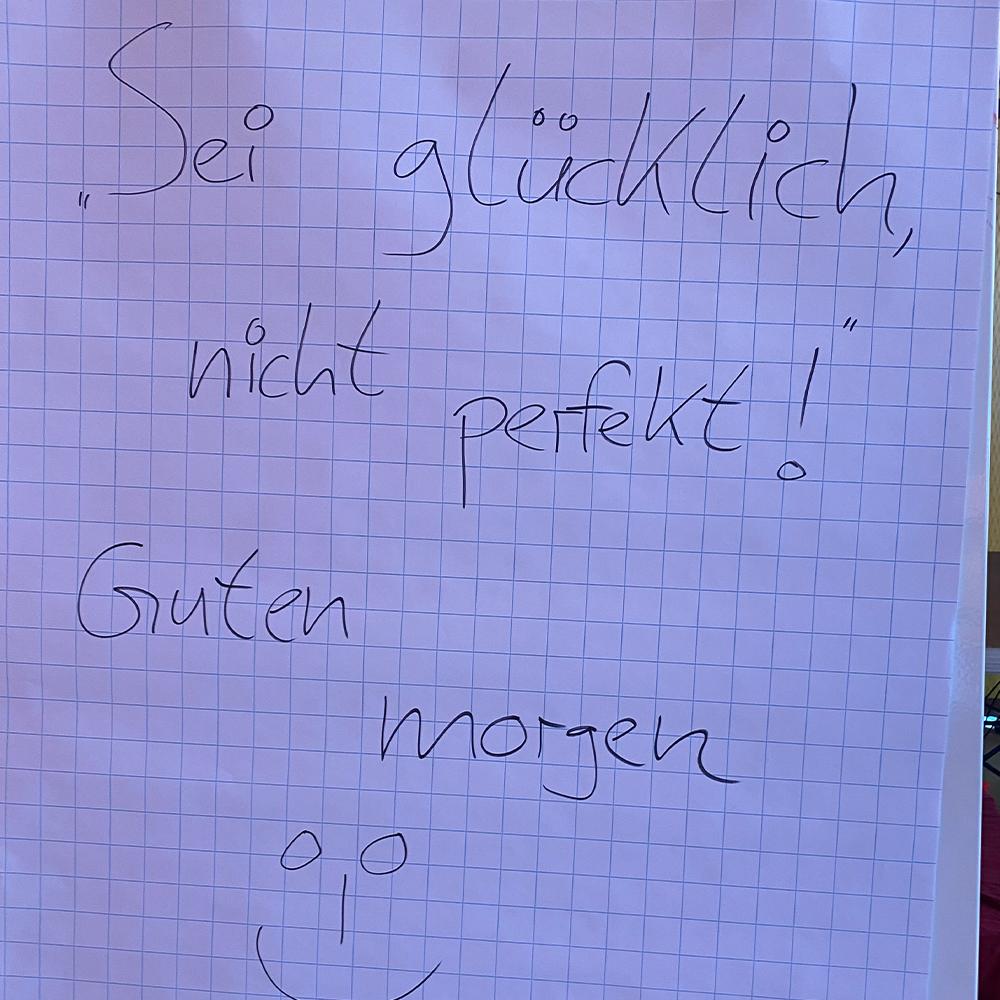 „Sei glücklich,
nicht perfekt!"
Guten
morgen